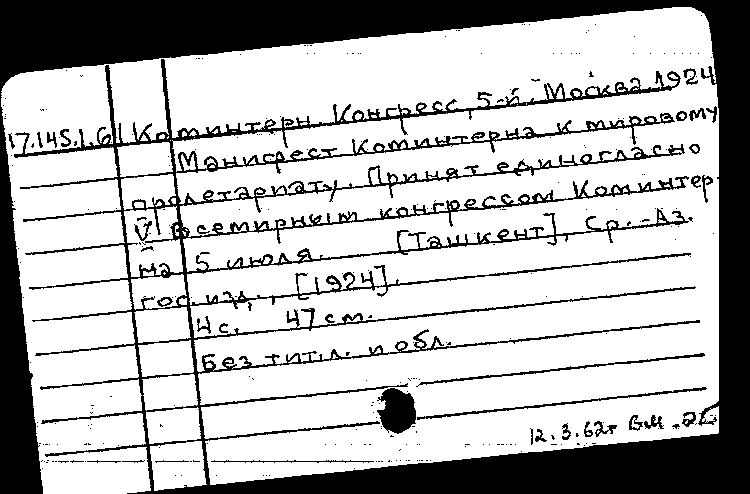 17.145.1.61 Коминтерн. Конгресс, 5-й. Москва. 1924
Манифест Коминтерна к мировому
пролетариату. Принят единогласно
V Всемирным конгрессом Коминтер-
на 5 июля. [Ташкент], Ср.-Аз.
гос. изд., [1924].
4 с. 47 см.
Без тит. л. и обл.
12.3.62г